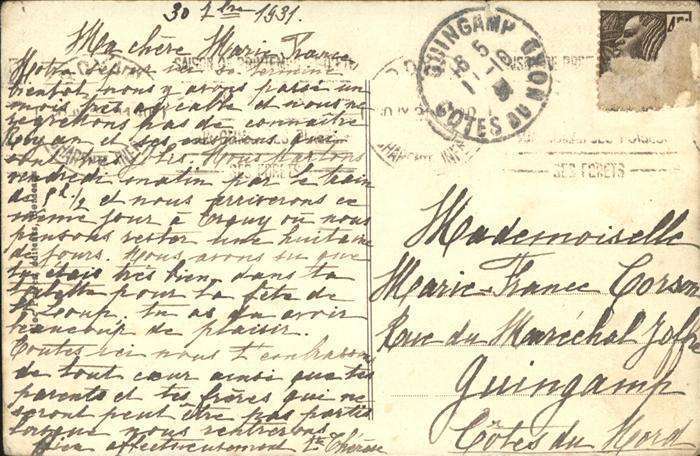 30 7bre 1931.
Ma chère Marie-France
Notre séjour ici se termine
bientôt, nous y avons passé un
mois très agréable et nous ne
regrettons pas de connaître
Royan et ses environs qui
sont très jolis. Nous partons
vendredi matin par le train
de 8h 1/2 et nous arriverons ce
même jour à où nous
pensons rester une huitaine
de jours. Nous avons su que
tu étais très bien dans ta
toilette pour la fête de
St Loup. Tu as dû avoir
beaucoup de plaisir.
Toutes ici nous t'embrassons
de tout cœur ainsi que tes
parents et tes frères qui ne
seront peut être pas partis
lorsque nous rentrerons.
Bien affectueusement Thérèse
GUINGAMP
18 5
COTES DU NORD
SAISON DE
SES FORETS
SES FORETS
Mademoiselle
Marie-France Corson
Rue du Maréchal Joffre
Guingamp
Côtes du Nord